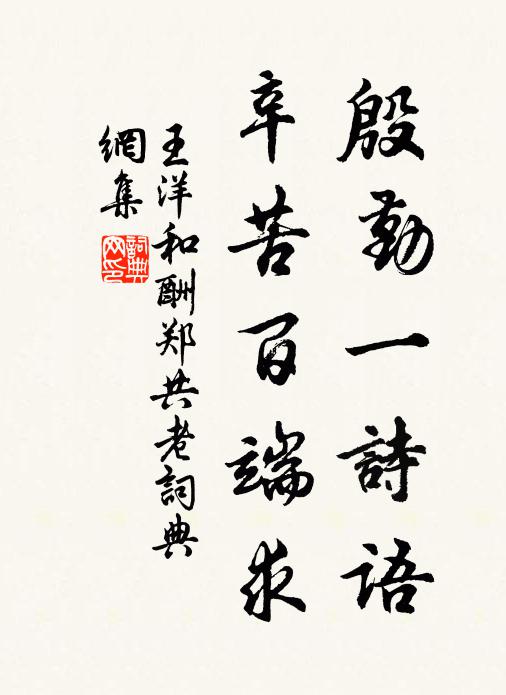 殷勤一詩語
辛苦百端求
王洋和酬郑共老詞典
網集
詞典网印